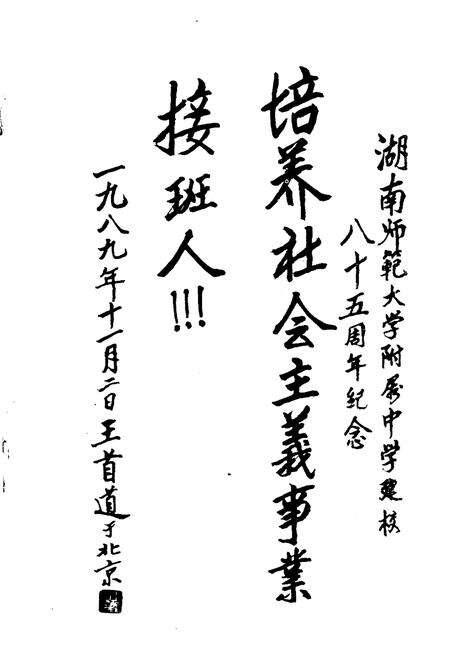 湖南师範大学附属中学建校
八十五周年纪念
培养社会主義事業
接班人!!!
一九八九年十一月二日王首道于北京